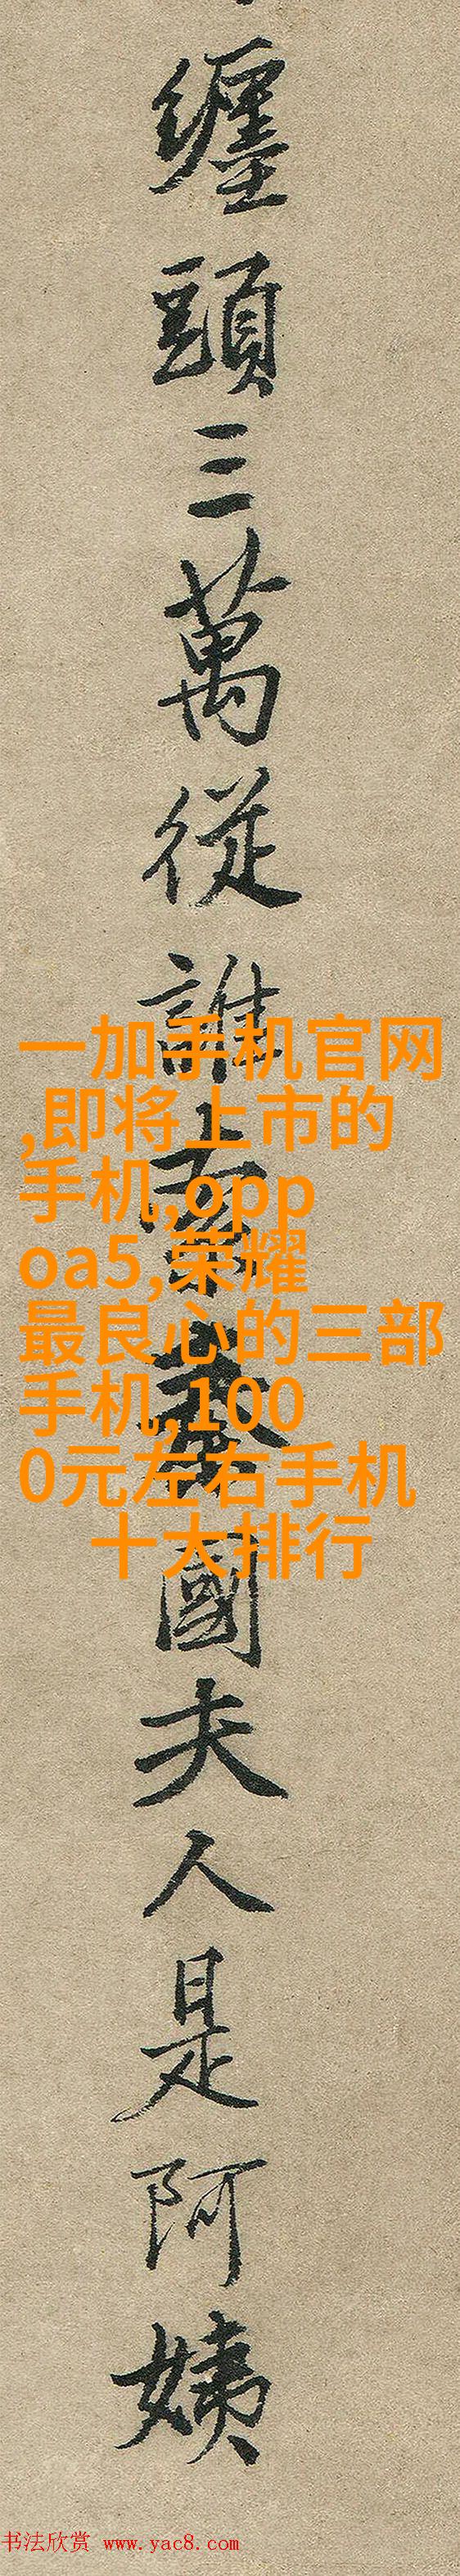 纏頭三萬從誰國夫人是阿姨
一加手机官网
,即将上市的
手机,opp
oa5,荣耀
最良心的三部
手机,100
0元左右手机
十大排行
书法欣赏 www.yac8.com